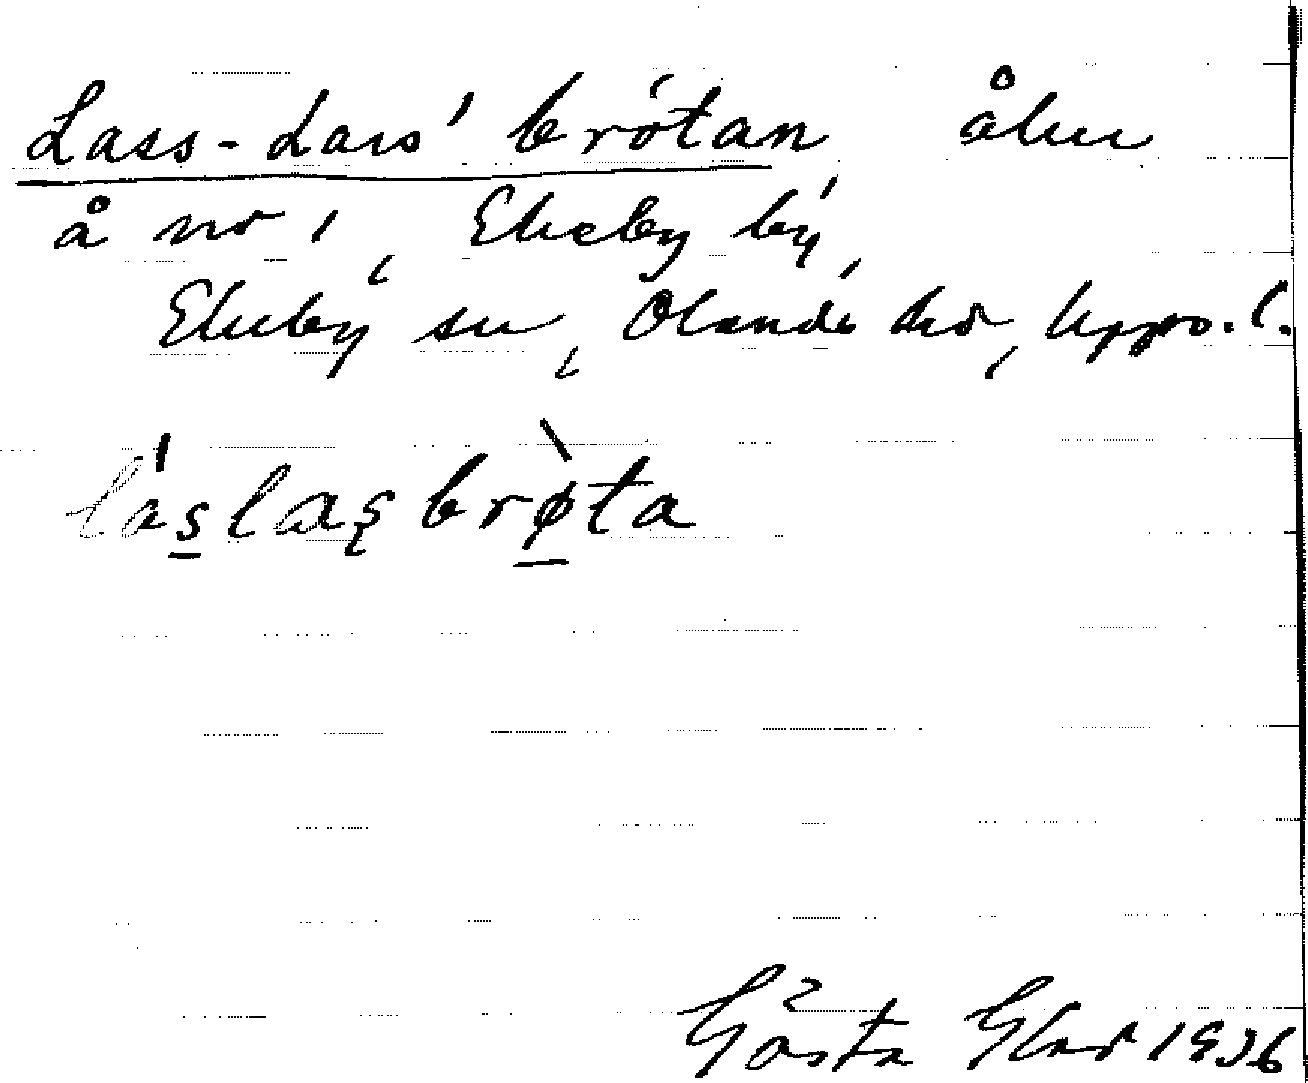 Lass-Lars' brötan, åker
å nr 1, Ekeby by,
Ekeby sn, Olands hd, Upps. l.
låslaʂbrøta
Gösta 1936